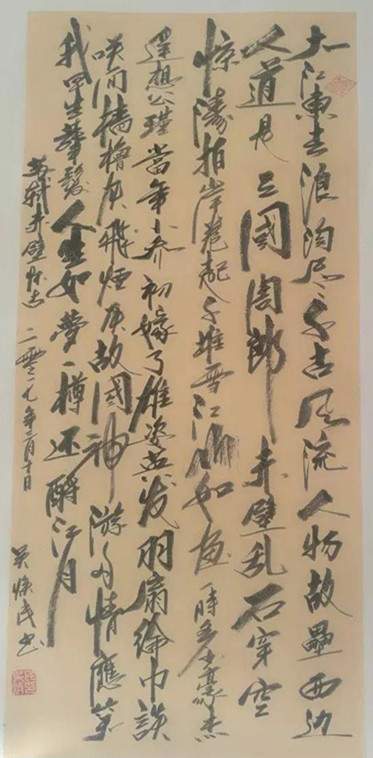 大江東去浪淘尽千古风流人物故壘西边
人道是三國周郎赤壁乱石穿空
惊濤拍岸卷起千堆雪江山如画一時多少豪杰
遥想公瑾當年小乔初嫁了雄姿英发羽扇綸巾談
咲间檣櫓灰飛煙灭故國神游多情應笑
我早生華髮人生如夢一樽还酹江月
苏轼赤壁怀古 二零一九年 月十日 吴焕民书